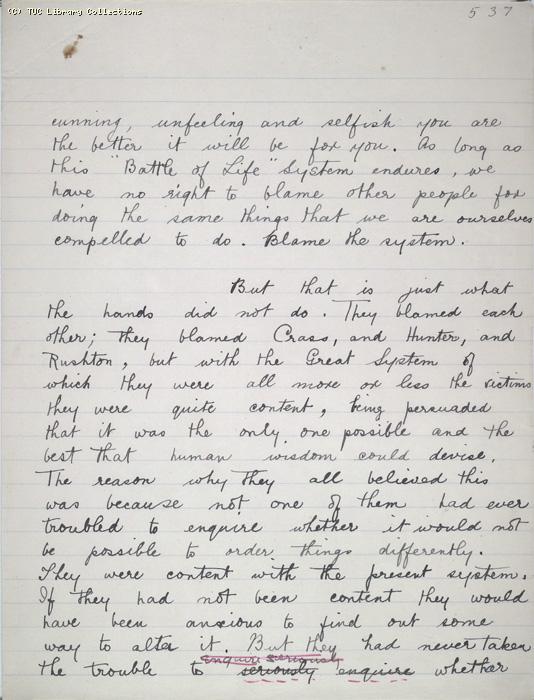 (C) TUC Library Collections
537
cunning, unfeeling and selfish you are
the better it will be for you. As long as
this "Battle of Life" System endures, we
have no right to blame other people for
doing the same things that we are ourselves
compelled to do. Blame the system.
But that is just what
the hands did not do. They blamed each
other; they blamed Crass, and Hunter, and
Rushton, but with the Great System of
which they were all more or less the victims
they were quite content, being persuaded
that it was the only one possible and the
best that human wisdom could devise.
The reason why they all believed this
was because not one of them had ever
troubled to enquire whether it would not
be possible to order things differently.
They were content with the present system.
If they had not been content they would
have been anxious to find out some
way to alter it. But they had never taken
enquire seriously
the trouble to seriously enquire whether